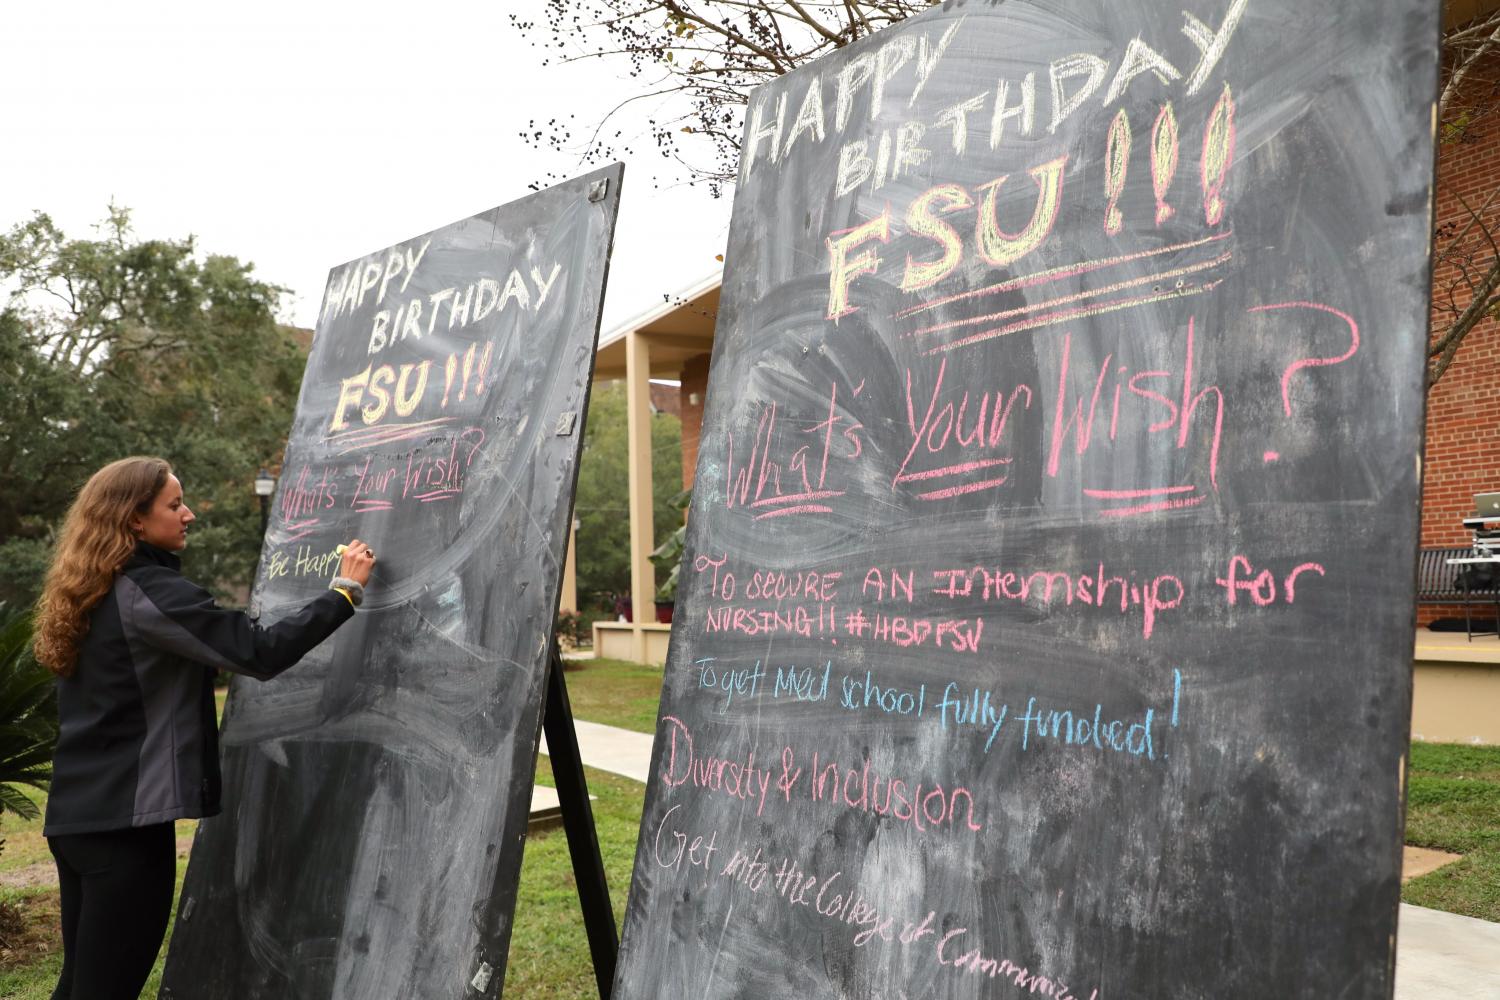 HAPPY
BIRTHDAY
FSU!!!
What's Your Wish?
Be Happy
HAPPY
BIRTHDAY
FSU!!!
What's Your Wish?
TO SECURE AN Internship for
NURSING!! #HBDFSU
To get Med school fully funded!
Diversity & Inclusion
Get into the College of